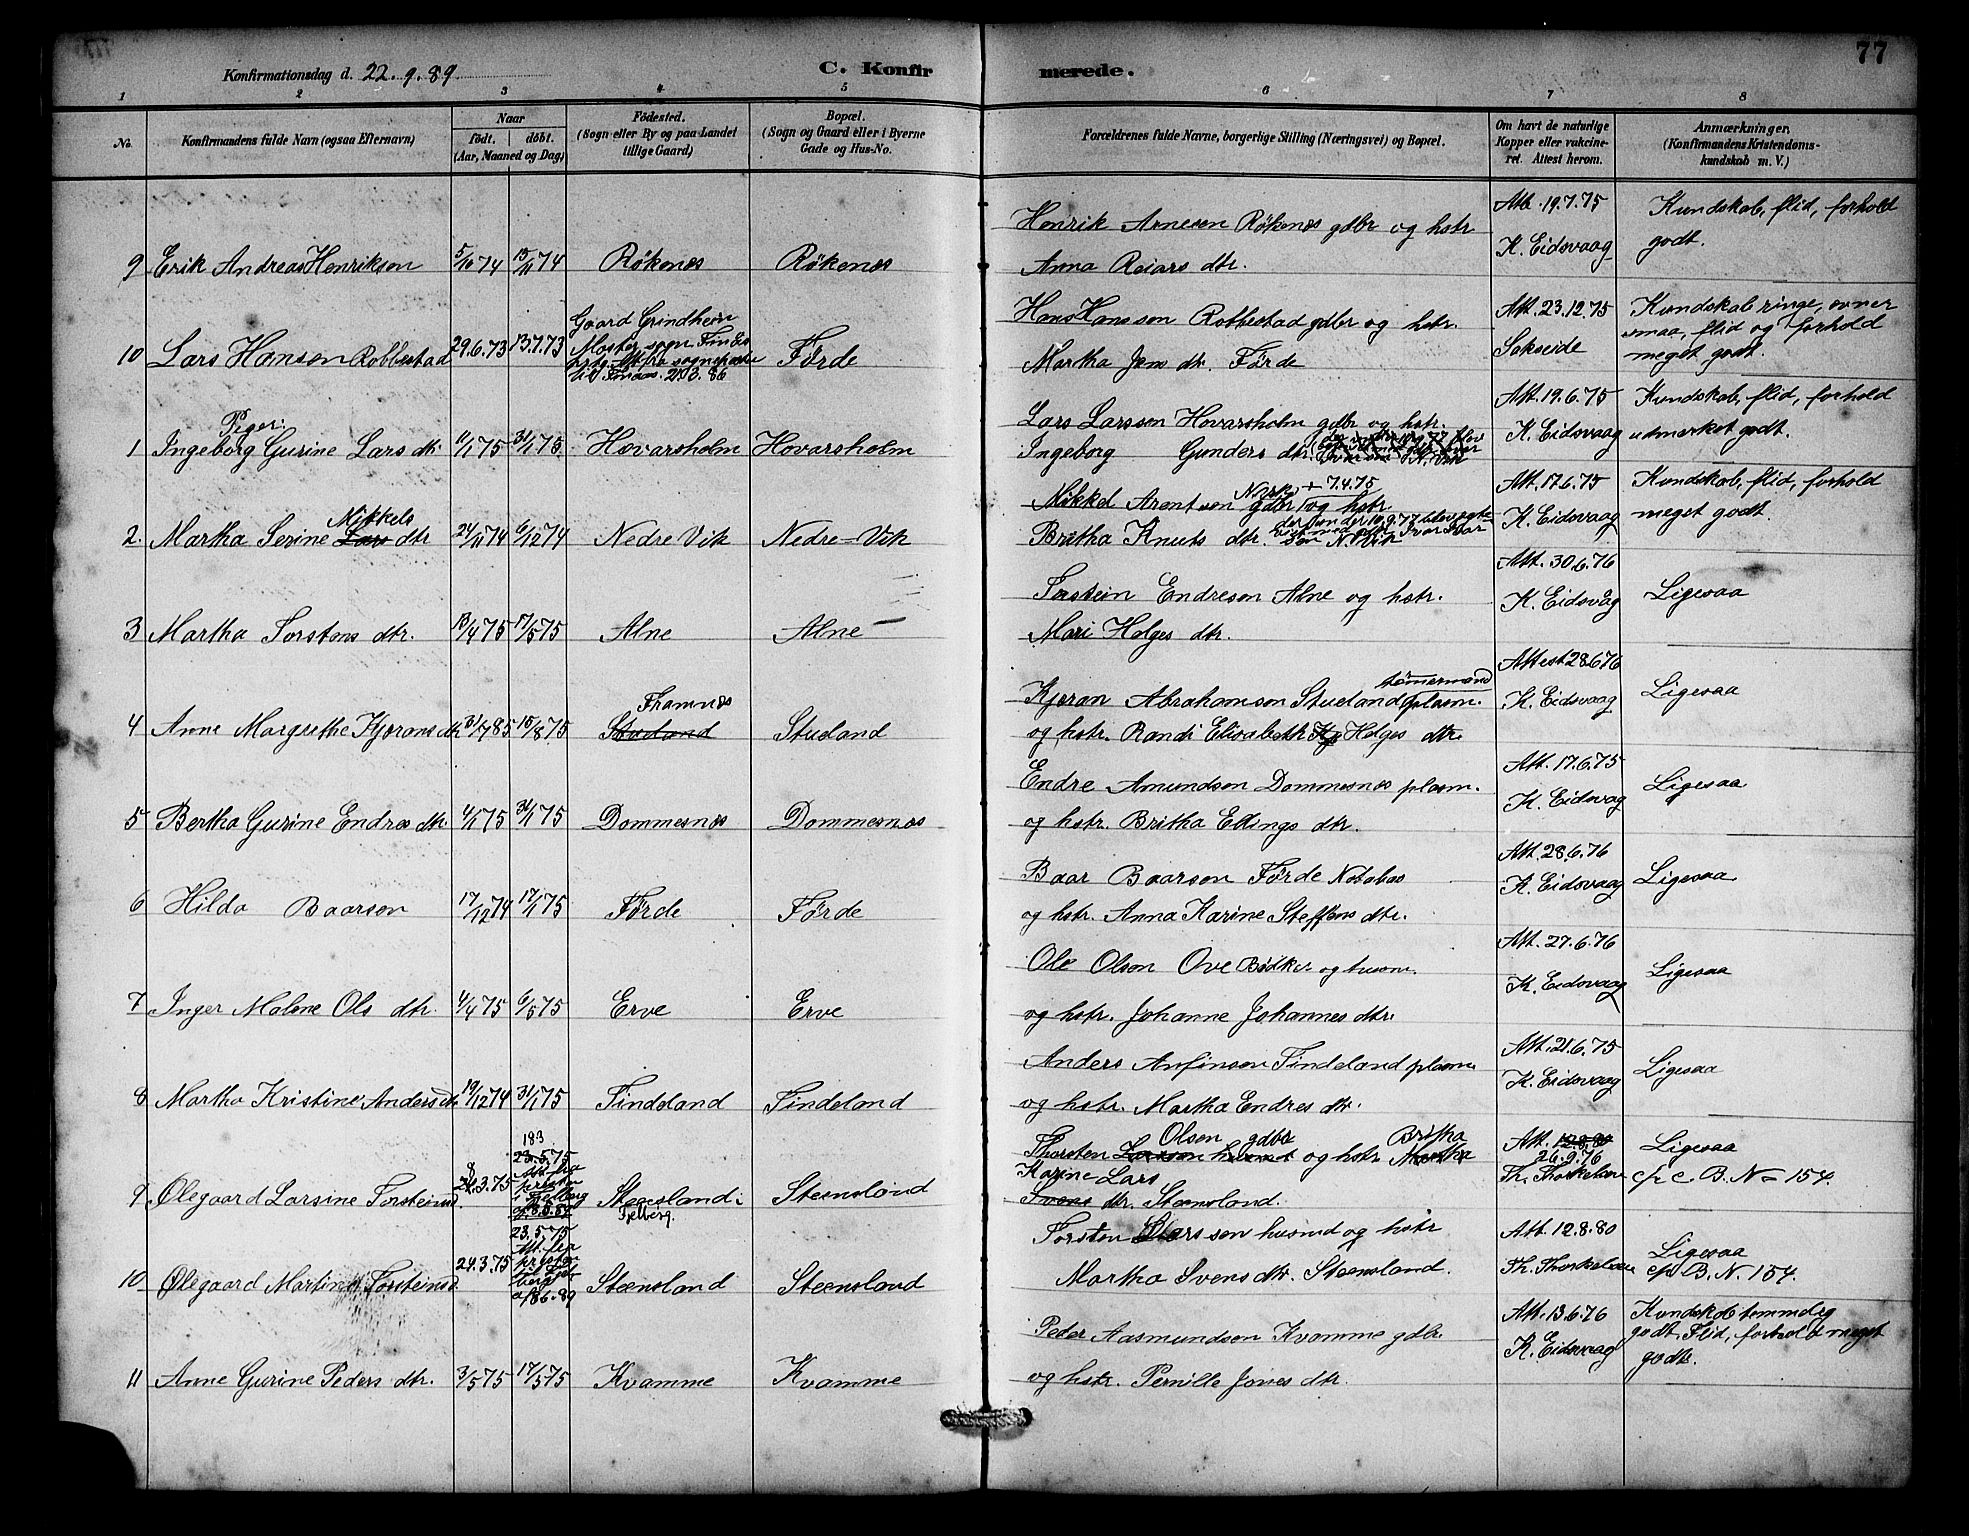 77
Konfirmationsdag d. 22.9.89. C. Konfirmerede.
1 2 3 4 5 6 7 8
No. Konfirmandens fulde Navn (ogsaa Efternavn) Naar født. døbt. (Aar, Maaned og Dag) Fødested. (Sogn eller By og paa Landet tillige Gaard) Bopæl. (Sogn og Gaard eller i Byerne Gade og Hus-No. Forældrenes fulde Navne, borgerlige Stilling (Næringsvei) og Bopæl. Om havt de naturlige Kopper eller vakcineret. Attest herom. Anmærkninger. (Konfirmandens Kristendomskundskab m. V.)
Henrik Arnesen Røkenes gdbr og hstr Att. 19.7.75 Kundskab, flid, forhold
9 Erik Andreas Henriksen 5/10 74 15/11 74 Røkenes Røkenes Anna Reiars dtr. K. Eidsvaag godt.
Gaard Grindheim Hans Hansson Robbestad gdbr og hstr. Att. 23.12.75 Kundskab ringe, evner
10 Lars Hansen Robbestad 29.6.73 13.7.73 Moster sogn Førde Martha Jens dtr. Førde Sekseide smaa, flid og forhold meget godt.
Piger:
Lars Larsson Hovarsholm gdbr og hstr. Att. 19.6.75 Kundskab, flid, forhold
1 Ingeborg Gurine Lars dtr. 11/1 75 31/1 75 Hovarsholm Hovarsholm Ingeborg Gunders dtr. K. Eidsvaag udmerket godt.
Mikkel Arentsen gdbr og hstr + 7.4.75 Att. 17.6.75 Kundskab, flid, forhold
2. Martha Serine Mikkels dtr 24/11 74 6/12 74 Nedre Vik Nedre-Vik Britha Knuts dtr. K. Eidsvaag meget godt.
Torstein Endreson Alne og hstr. Att. 30.6.76 Ligesaa
3 Martha Torstens dtr. 13/4 75 17/5 75 Alne Alne Mari Helges dtr. K. Eidsvåg
Framnes Kjøran Abrahamson Studland tømermand plasm. Attest 28.6 76 Ligesaa
4 Anne Margrethe Kjørans dtr 31/7 85 15/8 75 Studland Studland og hstr. Randi Elisabeth Helges dtr. K. Eidsvaag
Endre Amundson Dommesnes plasm. Att. 17.6.75 Ligesaa
5 Bertha Gurine Endres dtr 4/1 75 31/1 75 Dommesnes Dommesnes og hstr. Britha Ellings dtr. K. Eidsvaag
Baar Baarson Førde Notabas Att. 28.6.76 Ligesaa
6 Hilda Baarson 17/12 74 17/1 75 Førde Førde og hstr. Anna Karine Steffens dtr. K. Eidsvaag
Ole Olson Ove Bødker og husm. Att. 27.6.76 Ligesaa
7 Inger Malene Ols dtr. 4/4 75 6/5 75 Erve Erve og hstr. Johanne Johannes dtr. K. Eidsvaag
Anders Anfinson Tindeland plasm. Att. 21.6.75 Ligesaa
8 Martha Kristine Anders dtr 19/12 74 31/1 75 Tindeland Tindeland og hstr. Martha Endres dtr. K. Eidsvaag
Thorsten Olsen gdbr og hstr Britha Att. 26.9.76 Ligesaa
9 Ølegaard Larsine Torsteinsd. 3.75 Steensland Fjelberg. Steensland Karine Lars dtr. Steensland. Th. Thorkelsen cfr c B. N 154.
23.5.75 Torsten Larsson husmd og hstr Att. 12.8.80 Ligesaa
10 Ølegaard Martine Torsteinsd. 24.3.75 Steensland Steensland Martha Svens dtr. Steensland. Th. Thorkelsen cfr B. N. 154.
Peder Aasmundson Kvamme gdbr. Att. 13.6.76 Kundskab temmelig godt, Flid, forhold meget godt.
11 Anne Gurine Peders dtr. 3/5 75 17/5 75 Kvamme Kvamme og hstr. Pernille Joves dtr. K. Eidsvaag